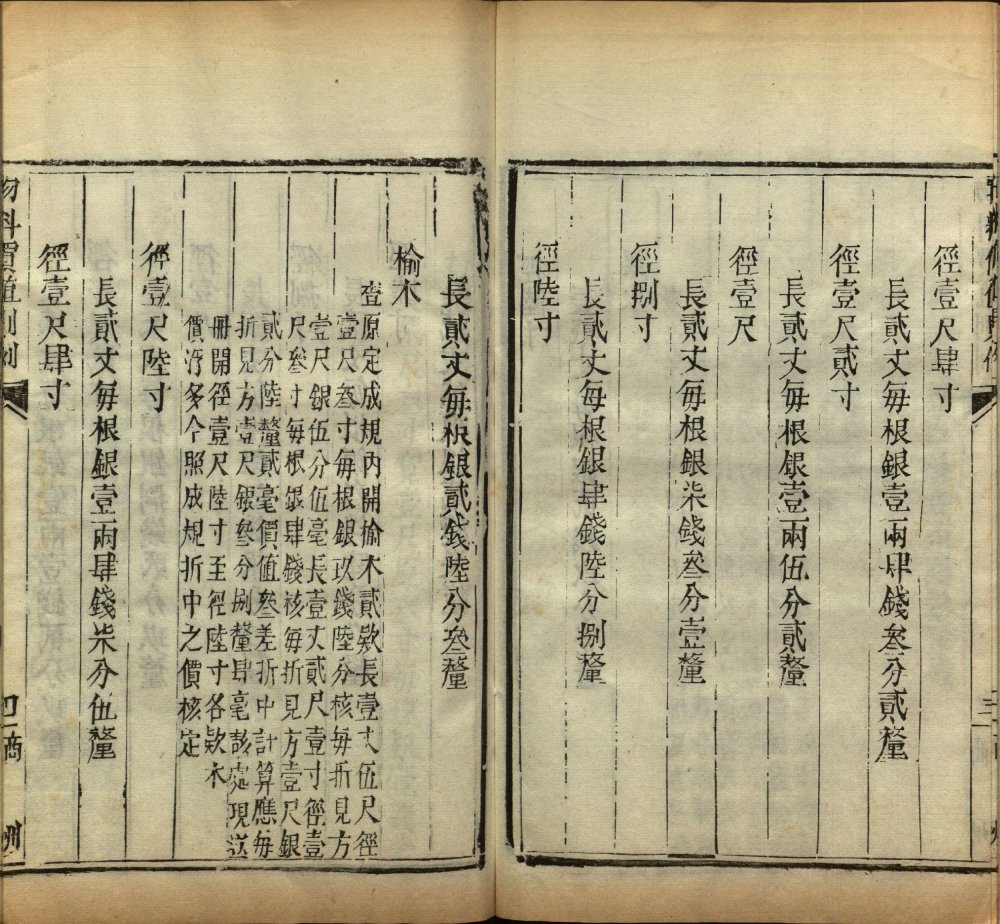 徑壹尺肆寸
長貳丈每根銀壹兩肆錢叁分貳釐
徑壹尺貳寸
長貳丈每根銀壹兩伍分貳釐
徑壹尺
長貳丈每根銀柒錢叁分壹釐
徑捌寸
長貳丈每根銀肆錢陸分捌釐
徑陸寸
長貳丈每根銀貳錢陸分叁釐
榆木
查原定成規內開榆木貳欵長壹丈伍尺徑
壹尺叁寸每根銀玖錢陸分核每折見方
壹尺銀伍分伍毫長壹丈貳尺壹寸徑壹
尺叁寸每根銀肆錢核每折見方壹尺銀
貳分陸釐貳毫價值叁差折中計算應每
折見方壹尺銀叁分捌釐肆毫該處現送
冊開徑壹尺陸寸至徑陸寸各欵木
價浮多今照成規折中之價核定
徑壹尺陸寸
長貳丈每根銀壹兩肆錢柒分伍釐
徑壹尺肆寸
物料價值則例 商州